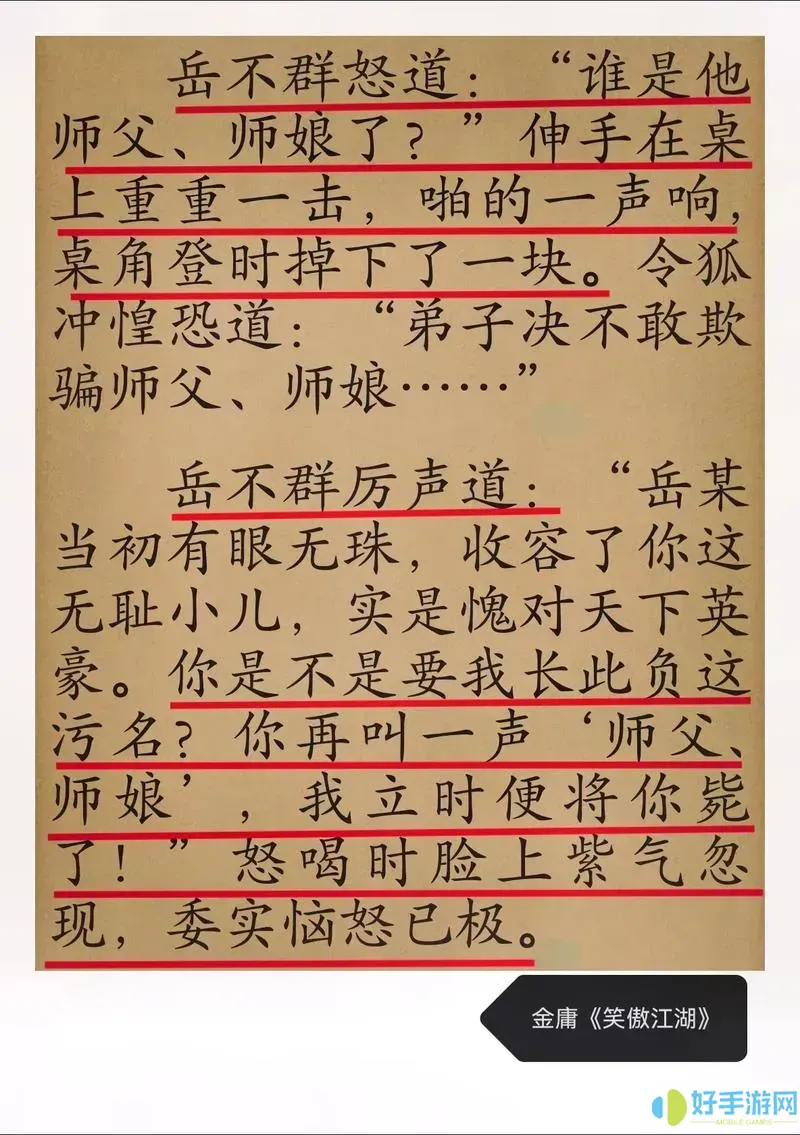 岳不群怒道：“谁是他
师父、师娘了？”伸手在桌
上重重一击，啪的一声响，
桌角登时掉下了一块。令狐
冲惶恐道：“弟子决不敢欺
骗师父、师娘……”
岳不群厉声道：“岳某
当初有眼无珠，收容了你这
无耻小儿，实是愧对天下英
豪。你是不是要我长此负这
污名？你再叫一声‘师父、
师娘’，我立时便将你毙
了！”怒喝时脸上紫气忽
现，委实恼怒已极。
金庸《笑傲江湖》
好手游网
MOBILE GAMES